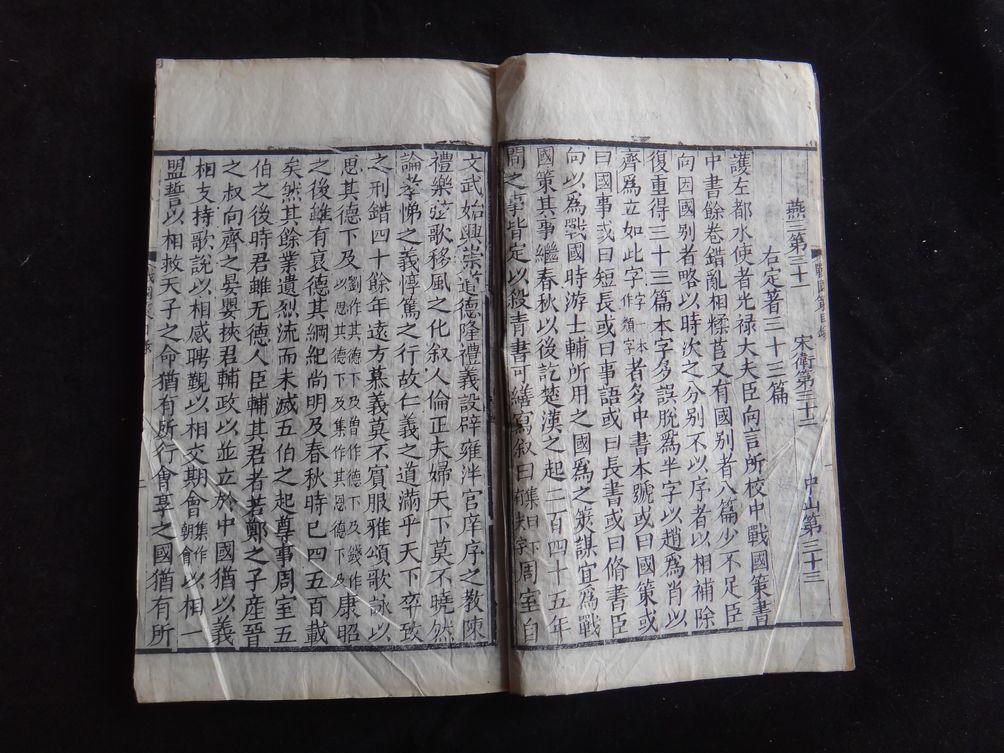 燕三第三十一 宋衛第三十二 中山第三十三
右定著三十三篇
護左都水使者光禄大夫臣向言所校中戰國策書
中書餘卷錯亂相糅莒又有國别者八篇少不足臣
向因國别者略以時次之分别不以序者以相補除
復重得三十三篇本字多誤脫為半字以趙為肖以
齊為立如此字一本字作類字者多中書本號或曰國策或
曰國事或曰短長或曰事語或曰長書或曰脩書臣
向以為戰國時游士輔所用之國為之筞謀宜為戰
國策其事繼春秋以後訖楚漢之起二百四十五年
間之事皆定以殺青書可繕寫叙曰周室自
文武始興崇道德隆禮義設辟雍泮宫庠序之教陳
禮樂弦歌移風之化叙人倫正夫婦天下莫不曉然
論孝悌之義惇篤之行故仁義之道滿乎天下卒致
之刑錯四十餘年逺方慕義莫不賓服雅頌歌詠以
思其德下及劉作其德下及曾作德下及錢作以思其德下及集作其恩德下及康昭
之後雖有衰德其綱紀尚明及春秋時已四五百載
矣然其餘業遺烈流而未滅五伯之起尊事周室五
伯之後時君雖无德人臣輔其君者若鄭之子産晉
之叔向齊之晏嬰挾君輔政以並立於中國猶以義
相支持歌說以相感聘覲以相交期會集作朝會以相一
盟誓以相救天子之命猶有所行會享之國猶有所